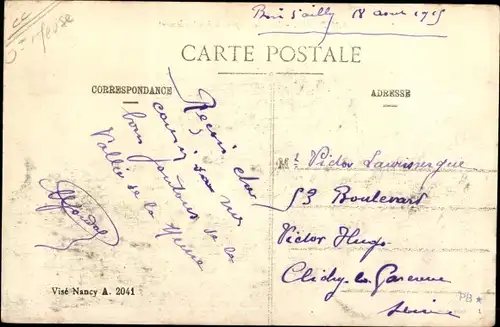 Meuse
Bois d'ailly 18 aout 1915
CARTE POSTALE
CORRESPONDANCE
ADRESSE
Reçois cher
cousin
bons de la
Vallée de la Meuse
Mr Victor
53 Boulevard
Victor Hugo
Clichy-la-Garenne
Seine
Visé Nancy A. 2041
PB